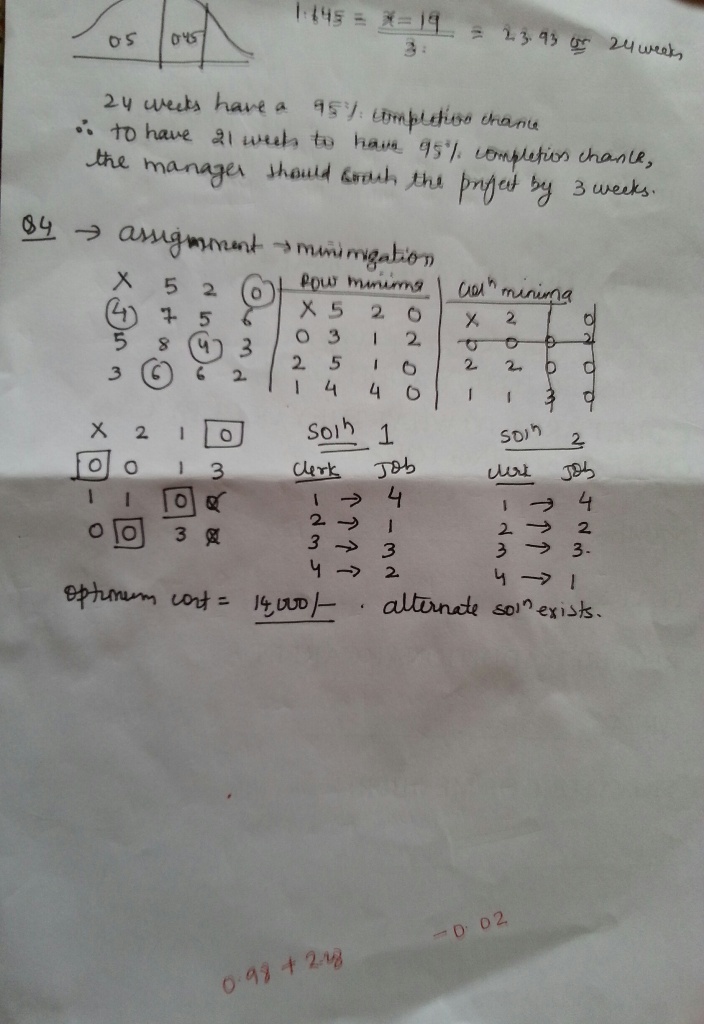 0.5 0.45
1.645 = x-19 / 3 = 23.93 or 24 weeks
24 weeks have a 95% completion chance
∴ to have 21 weeks to have 95% completion chance,
the manager should crash the project by 3 weeks.
Q4 → assignment → minimization
X 5 2 0
4 7 5 6
5 8 4 3
3 6 6 2
Row minima
X 5 2 0
0 3 1 2
2 5 1 0
1 4 4 0
minima
X 2 0
0 0 0 2
2 2 0 0
1 1 3 0
X 2 1 0
0 0 1 3
1 1 0 0
0 0 3 0
Soln 1
Clerk Job
1 → 4
2 → 1
3 → 3
4 → 2
Soln 2
Clerk Job
1 → 4
2 → 2
3 → 3.
4 → 1
optimum cost = 14,000/- . alternate soln exists.
-0.02
0.98 +